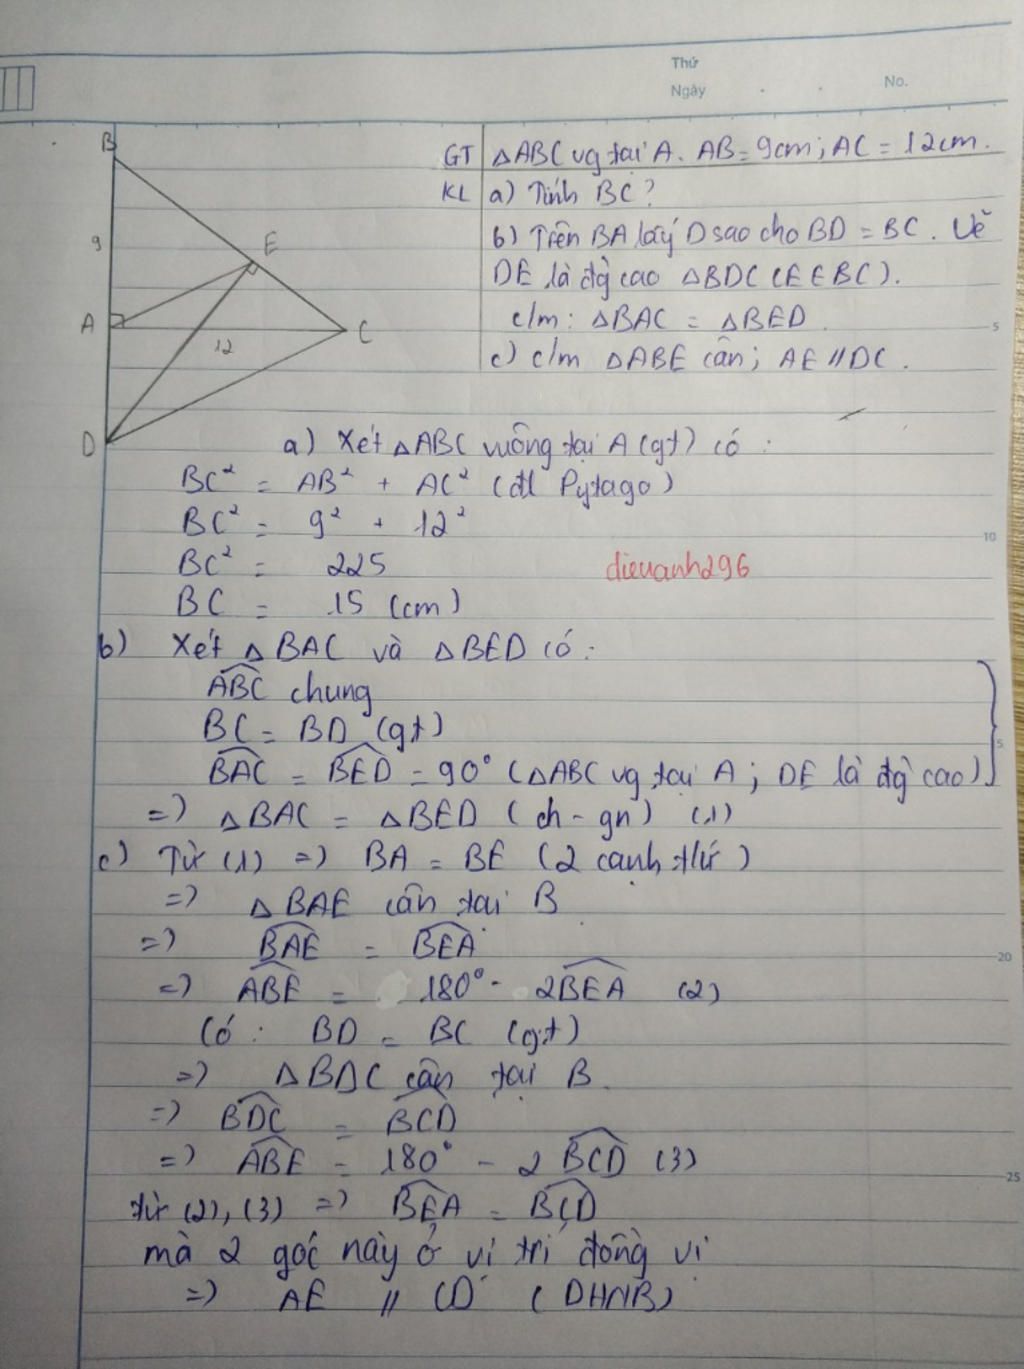 Thứ
Ngày
No.
B
9
E
A
12
C
D
GT ΔABC vg tại A. AB = 9cm; AC = 12cm.
KL a) Tính BC?
b) Trên BA lấy D sao cho BD = BC. Vẽ
DE là đg cao ΔBDC (E ∈ BC).
c/m: ΔBAC = ΔBED.
c) c/m ΔABE cân; AE // DC.
5
a) Xét ΔABC vuông tại A (gt) có:
BC² = AB² + AC² (đl Pytago)
BC² = 9² + 12²
10
BC² = 225
dieuanh296
BC = 15 (cm)
b) Xét ΔBAC và ΔBED có:
ABC chung
BC = BD (gt)
5
BAC = BED = 90° (ΔABC vg tại A; DE là đg cao)
=> ΔBAC = ΔBED (ch - gn) (1)
c) Từ (1) => BA = BE (2 cạnh tứ)
=> ΔBAE cân tại B
=> BAE = BEA
20
=> ABE = 180° - 2BEA (2)
Có: BD = BC (gt)
=> ΔBDC cân tại B.
=> BDC = BCD
=> ABE = 180° - 2 BCD (3)
25
từ (2), (3) => BEA = BCD
mà 2 góc này ở vị trí đồng vị
=> AE // CD (DHNB)